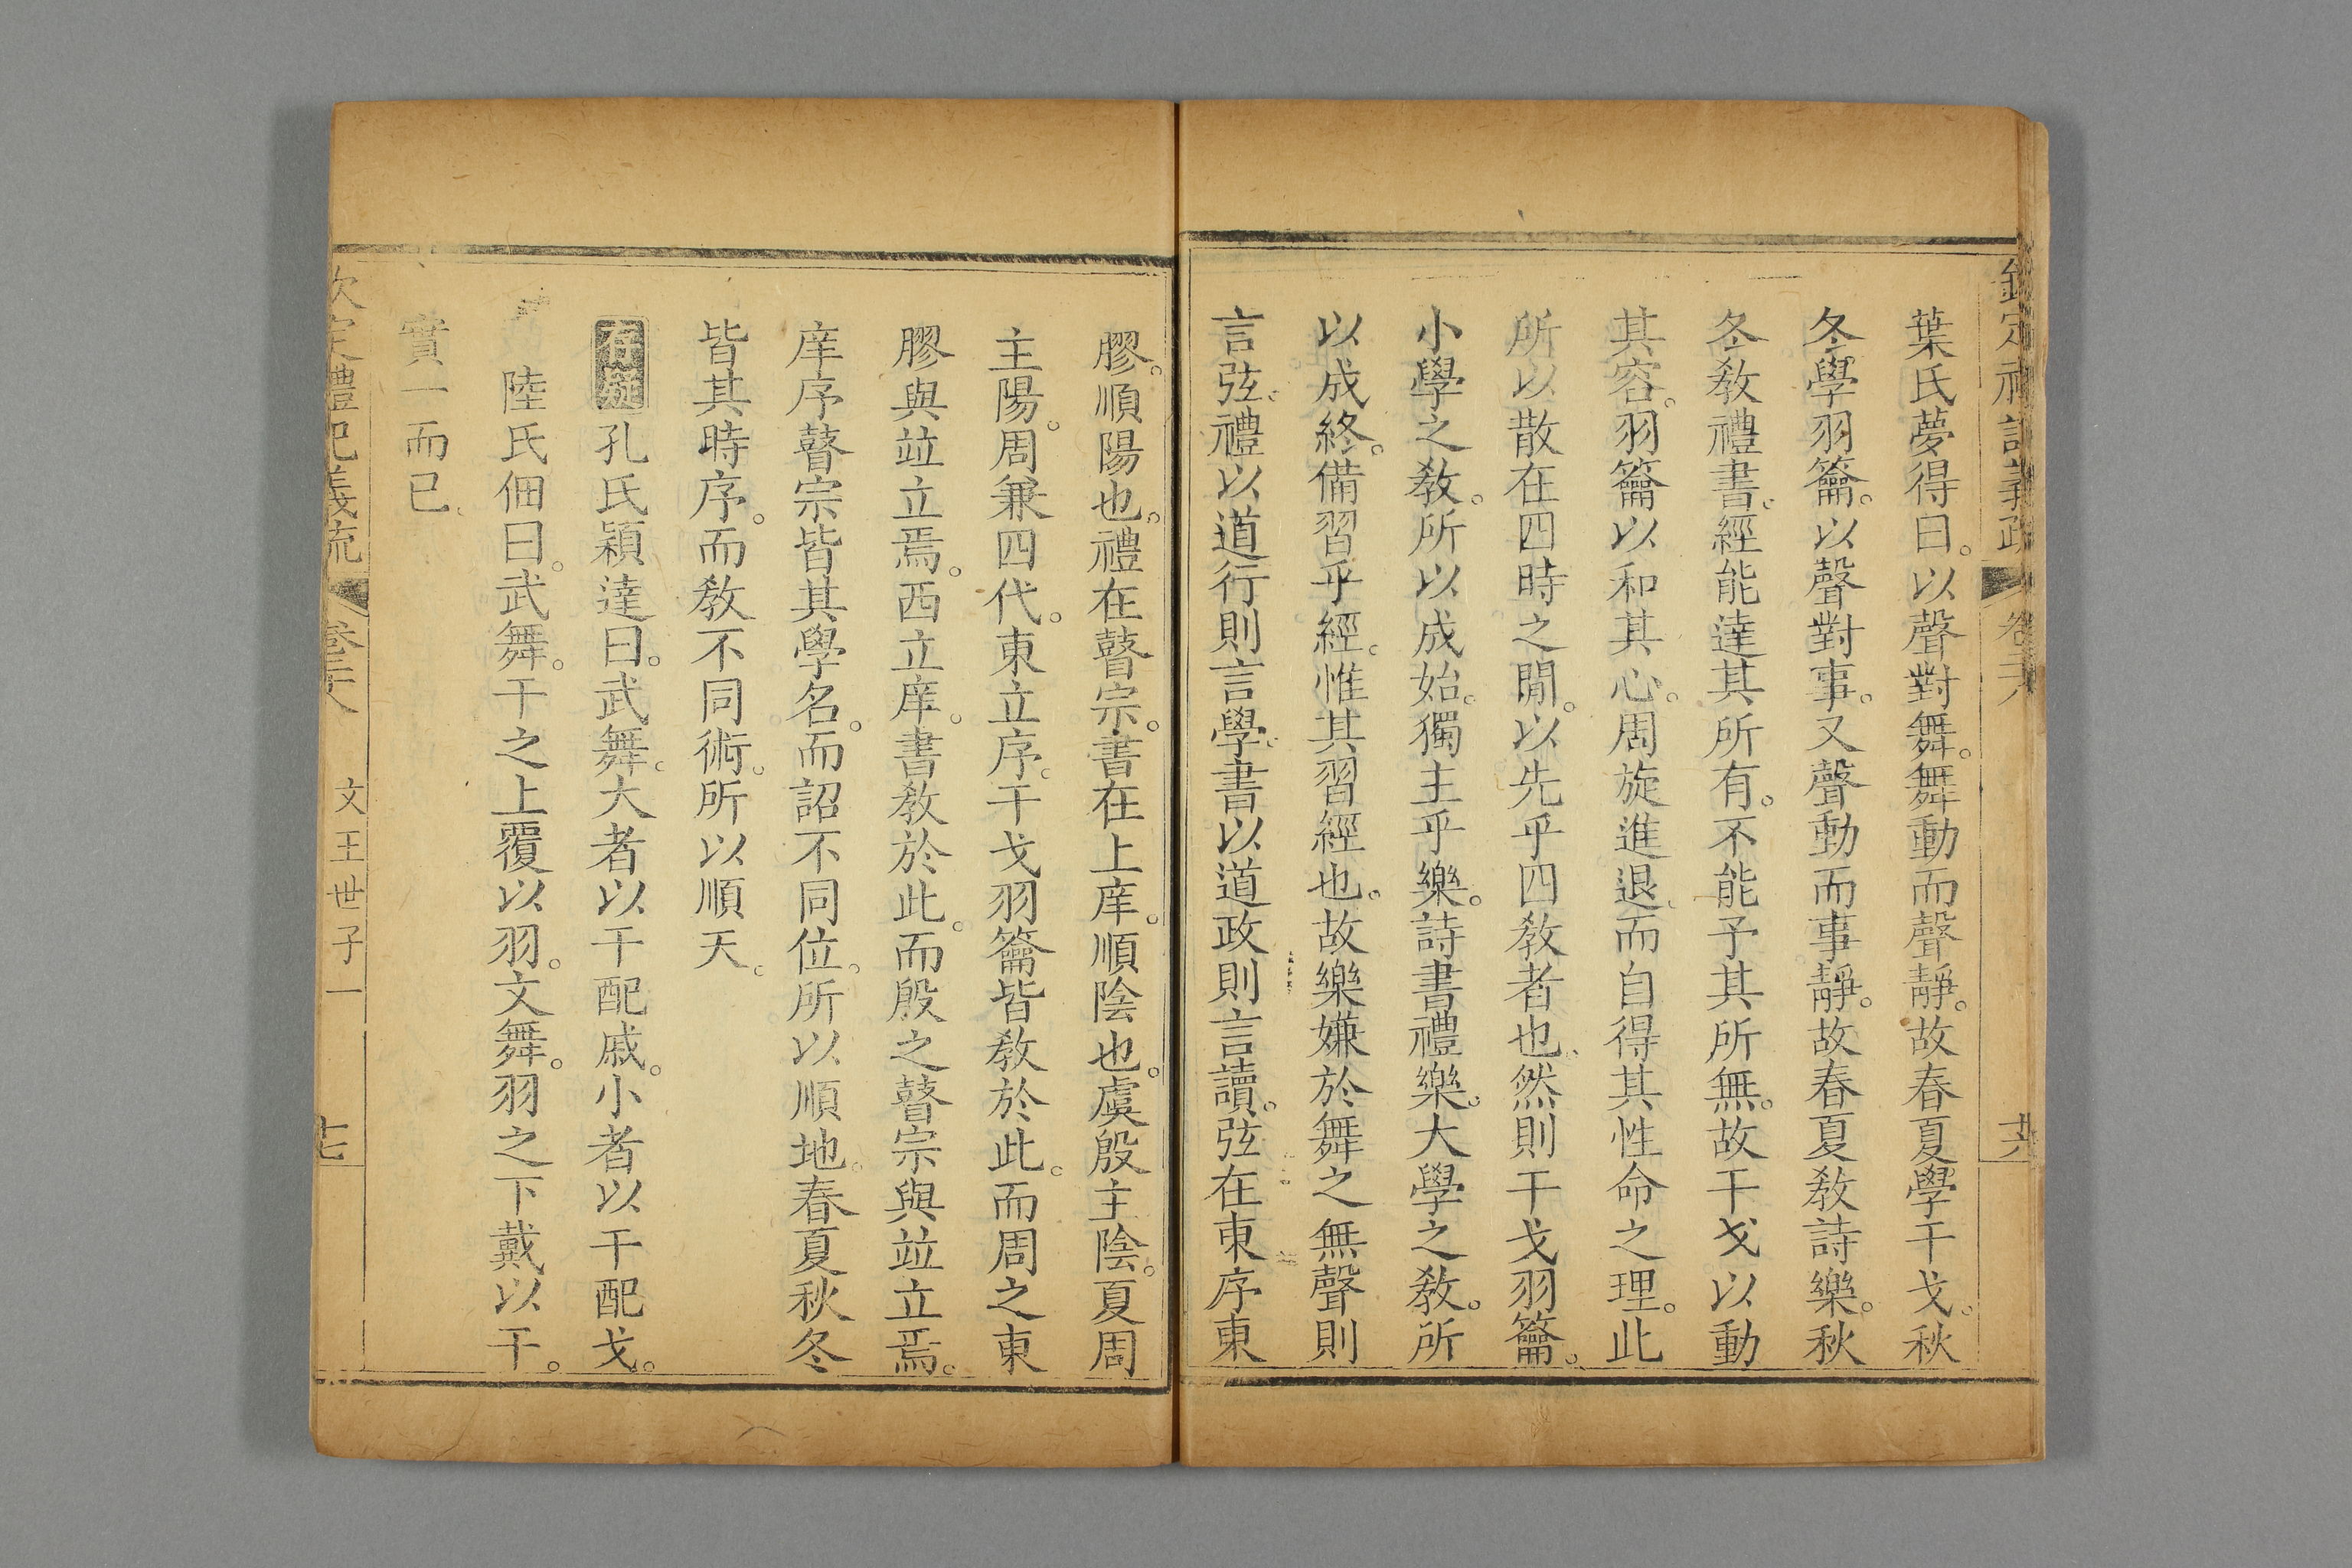 欽定禮記義疏 卷二十八 共
葉氏夢得曰。以聲對舞。舞動而聲靜。故春夏學干戈。秋
冬學羽籥。以聲對事。又聲動而事靜。故春夏敎詩樂。秋
冬敎禮書。經能達其所有。不能予其所無。故干戈以動
其容。羽籥以和其心。周旋進退。而自得其性命之理。此
所以散在四時之閒。以先乎四敎者也。然則干戈羽籥。
小學之敎。所以成始。獨主乎樂。詩書禮樂。大學之敎。所
以成終。備習乎經。惟其習經也。故樂嫌於舞之無聲則
言弦。禮以道行則言學。書以道政則言讀。弦在東序東
膠。順陽也。禮在瞽宗。書在上庠。順陰也。虞殷主陰。夏周
主陽。周兼四代。東立序。干戈羽籥皆敎於此。而周之東
膠與竝立焉。西立庠。書敎於此。而殷之瞽宗與竝立焉。
庠序瞽宗皆其學名。而詔不同位。所以順地。春夏秋冬
皆其時序。而敎不同術。所以順天。
存疑 孔氏穎達曰。武舞。大者以干配戚。小者以干配戈。
陸氏佃曰。武舞。干之上覆以羽。文舞。羽之下戴以干。
實一而已。
欽定禮記義疏 卷二十八 文王世子一 七